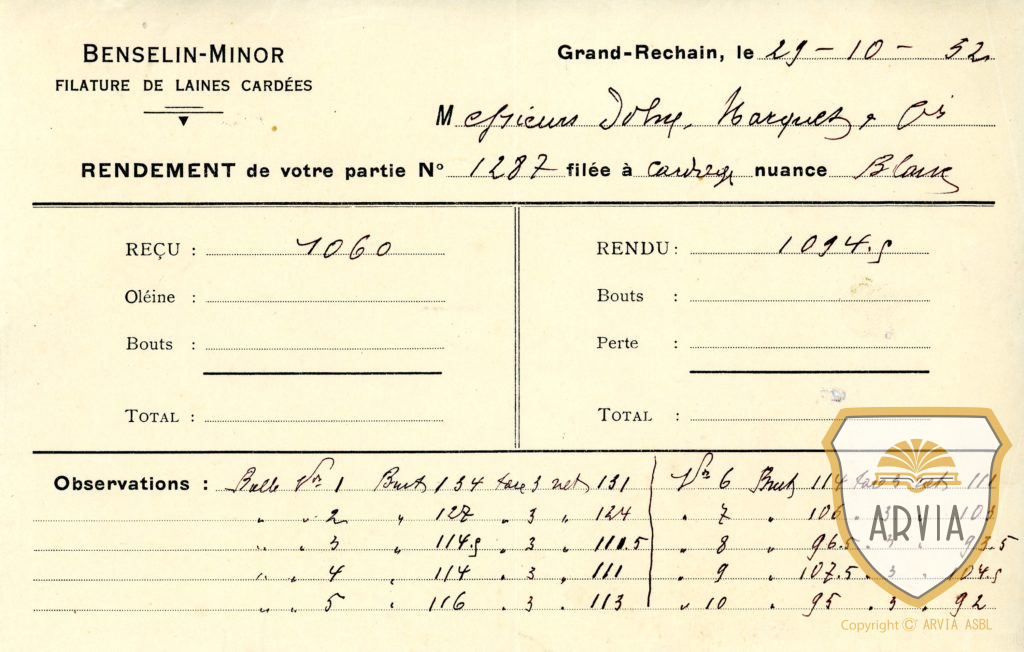 BENSELIN-MINOR
FILATURE DE LAINES CARDÉES
Grand-Rechain, le 29 - 10 - 32
Messieurs Dohy, Marquet & Cie
RENDEMENT de votre partie N° 1287 filée à cardage nuance Blanc
REÇU : 1060
Oléine :
Bouts :
TOTAL :
RENDU : 1094.5
Bouts :
Perte :
TOTAL :
Observations : Balle Nos 1 Brut 134 tare 3 net 131 Nos 6 Brut 114 tare 3 net 111
" " 2 " 127 " 3 " 124 " 7 " 106 " 3 " 103
" " 3 " 114.5 " 3 " 111.5 " 8 " 96.5 " 3 " 93.5
" " 4 " 114 " 3 " 111 " 9 " 107.5 " 3 " 104.5
" " 5 " 116 " 3 " 113 " 10 " 95 " 3 " 92
ARVIA
Copyright © ARVIA ASBL